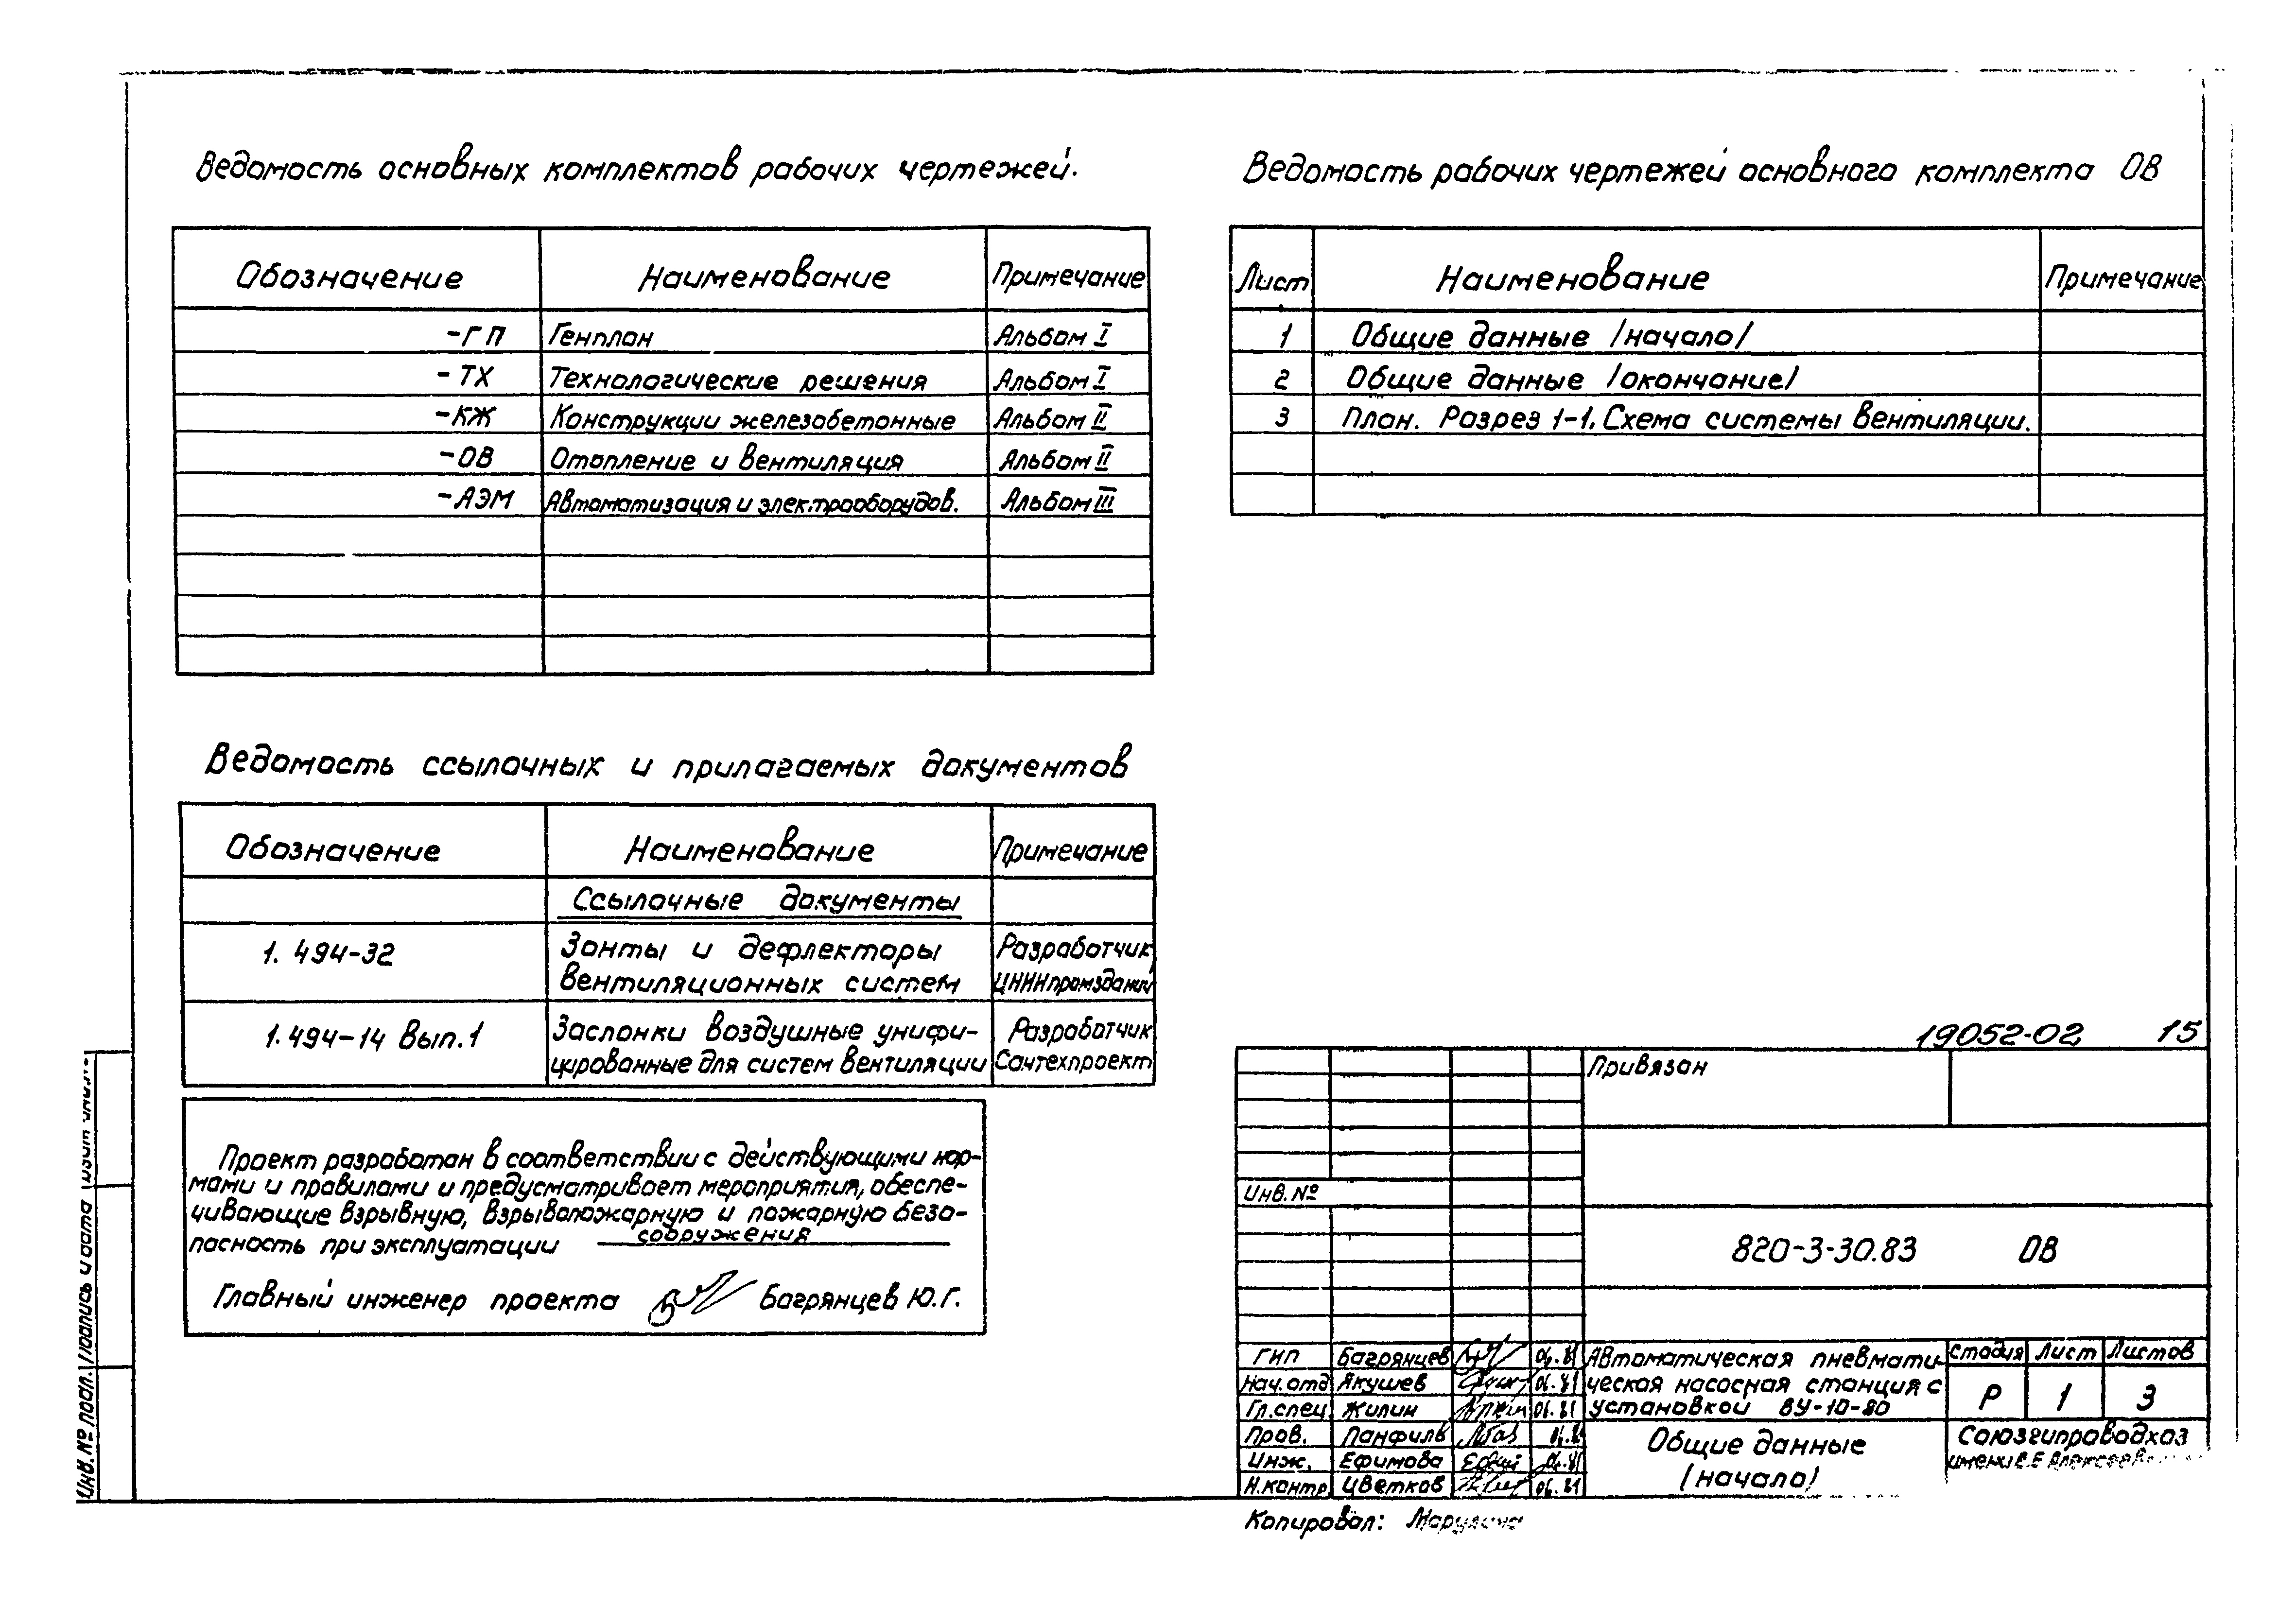 Ведомость основных комплектов рабочих чертежей.
Обозначение Наименование Примечание
-ГП Генплан Альбом I
-ТХ Технологические решения Альбом I
-КЖ Конструкции железобетонные Альбом II
-ОВ Отопление и вентиляция Альбом II
-АЭМ Автоматизация и электрооборудов. Альбом III
Ведомость рабочих чертежей основного комплекта ОВ
Лист Наименование Примечание
1 Общие данные /начало/
2 Общие данные /окончание/
3 План. Разрез 1-1. Схема системы вентиляции.
Ведомость ссылочных и прилагаемых документов
Обозначение Наименование Примечание
Ссылочные документы
1.494-32 Зонты и дефлекторы Разработчик
вентиляционных систем ЦНИИпромзданий
1.494-14 Вып.1 Заслонки воздушные унифи- Разработчик
цированные для систем вентиляции Сантехпроект
Проект разработан в соответствии с действующими нор-
мами и правилами и предусматривает мероприятия, обеспе-
чивающие взрывную, взрывопожарную и пожарную безо-
пасность при эксплуатации сооружения
Главный инженер проекта Багрянцев Ю.Г.
19052-02 15
Привязан
Инв.№
820-3-30.83 ОВ
ГИП Багрянцев 04.81
Нач.отд Якушев 04.81
Гл.спец Жилин 04.81
Пров. Панфиль
Инж. Ефимова 04.81
Н.контр Цветков 04.81
Автоматическая пневмати-
ческая насосная станция с
установкой ВУ-10-80
Стадия Лист Листов
Р 1 3
Общие данные
/начало/
Союзгипроводхоз
имени Е.Е.
Копировал:
Инв.№ подл. Подпись и дата